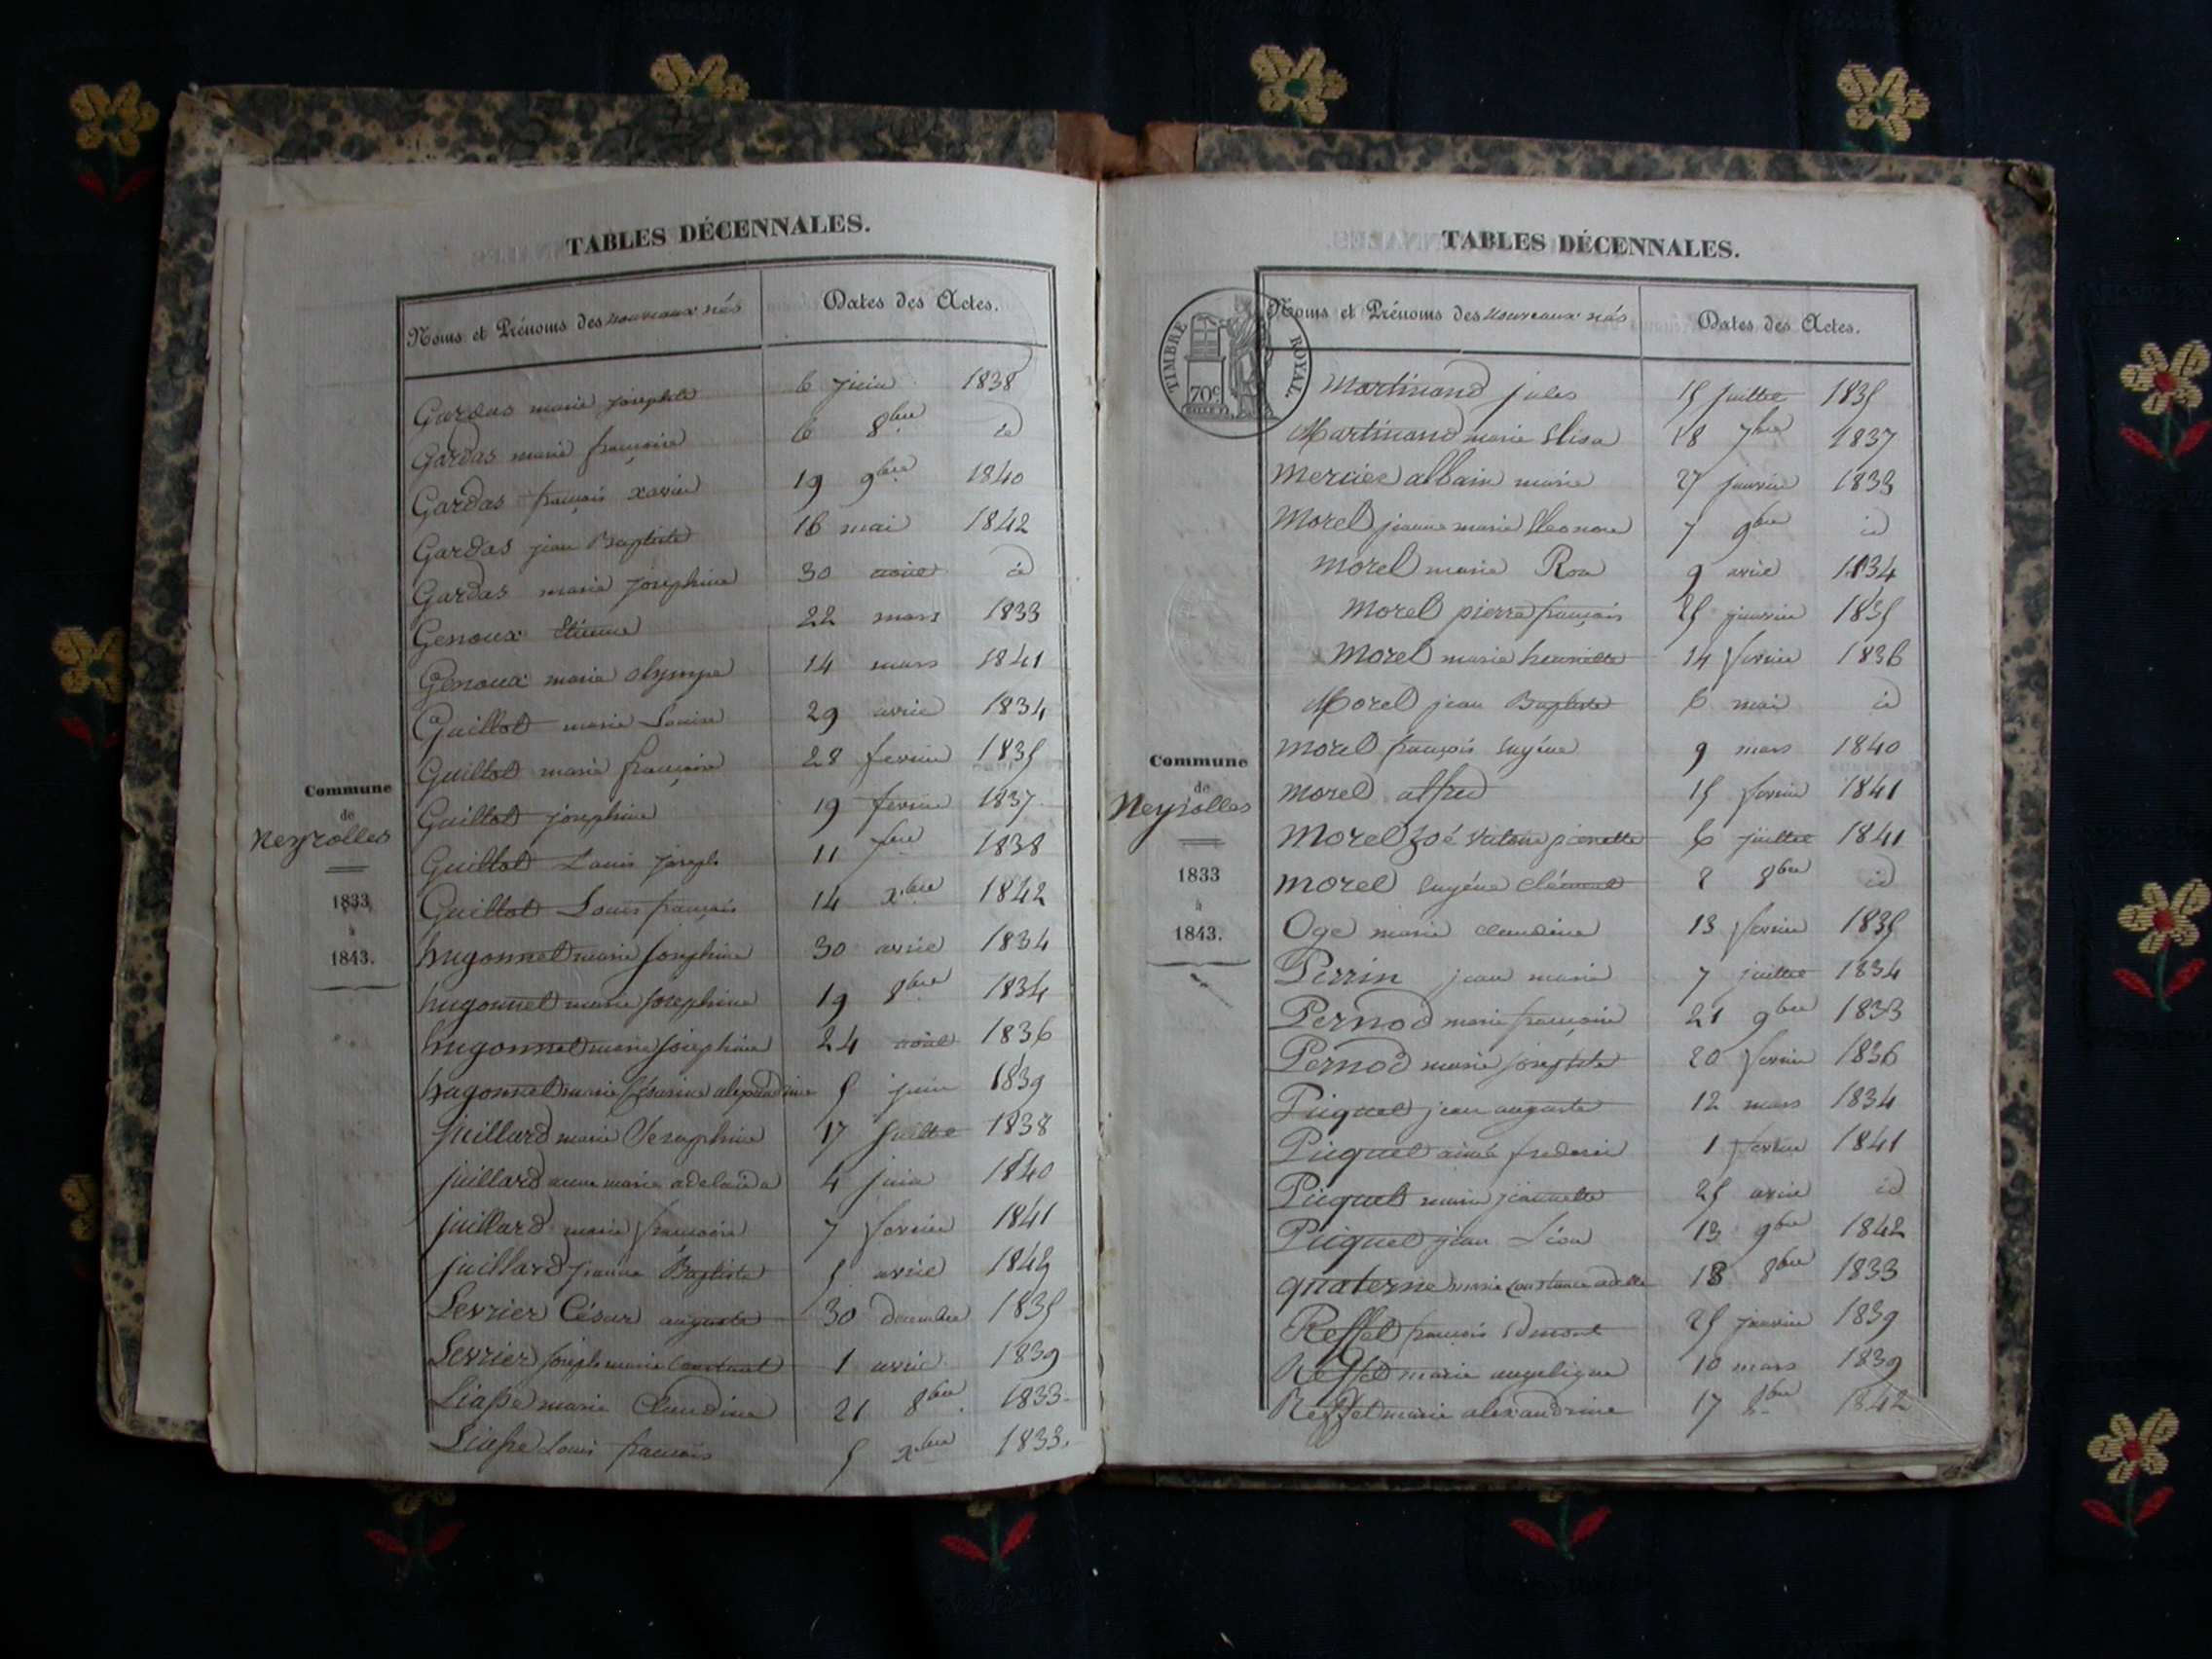 TABLES DÉCENNALES.
Noms et Prénoms des nouveaux nés Dates des Actes.
Gardas marie josephte 6 juin 1838
Gardas marie françoise 6 8bre id
Gardas françois xavier 19 9bre 1840
Gardas jean Baptiste 16 mai 1842
Gardas marie josephine 30 aout id
Genoux Etienne 22 mars 1833
Genoux marie olympe 14 mars 1841
Guillot marie Louise 29 avril 1834
Guillot marie françoise 28 fevrier 1835
Guillot josephine 19 fevrier 1837
Guillot Louis joseph 11 1838
Guillot Louis françois 14 xbre 1842
hugonnet marie josephine 30 avril 1834
hugonnet marie josephine 19 8bre 1834
hugonnet marie josephine 24 aout 1836
hugonnet marie Césarine alexandrine 5 juin 1839
juillard marie Seraphine 17 juillet 1838
juillard anne marie adelaïde 4 juin 1840
juillard marie françoise 7 fevrier 1841
juillard Baptiste 5 avril
Levrier César auguste 30 decembre 1835
Levrier joseph marie Constant 1 avril 1839
Liasse marie Claudine 21 8bre 1833
Liasse Louis françois 5 xbre 1833.
Commune
de
Neyrolles
1833
à
1843.
TABLES DÉCENNALES.
TIMBRE ROYAL
70c
Noms et Prénoms des nouveaux nés Dates des Actes.
Martinand jules 15 juillet 1835
Martinand marie Elisa 18 7bre 1837
Mercier albain marie 27 janvier 1833
Morel jeanne marie Eleonore 7 9bre id
Morel marie Rose 9 avril 1834
Morel pierre françois 25 janvier 1835
Morel marie henriette 14 fevrier 1836
Morel jean Baptiste 6 mai id
Morel françois Eugène 9 mars 1840
Morel alfred 15 fevrier 1841
Morel Zoé pierrette 6 juillet 1841
Morel Eugène Clément 8 8bre id
Oge marie claudine 13 fevrier 1835
Perrin jean marie 7 juillet 1834
Pernod marie françoise 21 9bre 1833
Pernod marie josephte 20 fevrier 1836
Piquet jean auguste 12 mars 1834
Piquet aimé frederic 1 fevrier 1841
Piquet marie jeannette 25 avril id
Piquet jean Léon 13 9bre 1842
quaterne marie Constance adelle 18 8bre 1833
Reffet françois Edmont 25 janvier 1839
Reffet marie angelique 10 mars 1839
Reffet marie alexandrine 17 8bre 1842
Commune
de
Neyrolles
1833
à
1843.